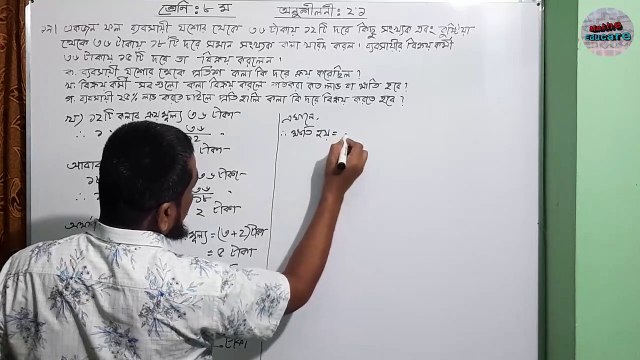 শ্রেণি : ৮ ম
অনুশীলনী : ২.১
২৭। একজন ফল ব্যবসায়ী যশোর থেকে ৩৬ টাকায় ১২ টি দরে কিছু সংখ্যক এবং কুষ্টিয়া
থেকে ৩৬ টাকায় ১৮ টি দরে সমান সংখ্যক কলা খরিদ করল। ব্যবসায়ীর বিক্রয়কর্মী
৩৬ টাকায় ১৫ টি দরে তা বিক্রয় করলেন।
ক. ব্যবসায়ী যশোর থেকে প্রতিশ কলা কি দরে ক্রয় করেছিল?
খ. বিক্রয়কর্মী সব গুলো কলা বিক্রয় করলে শতকরা কত লাভ বা ক্ষতি হবে?
গ. ব্যবসায়ী ২৫% লাভ করতে চাইলে প্রতি হালি কলা কি দরে বিক্রয় করতে হবে?
খ) ১২ টি কলার ক্রয়মূল্য ৩৬ টাকা
∴ ১ ৩৬
১২
টাকা
আবার
১৮ ৩৬ টাকা
∴ ১ ৩৬
১৮
২ টাকা
মূল্য = (৩+২) টাকা
= ৫ টাকা
টাকা
এখানে,
∴ ক্ষতি হয় =
Maths
Educare